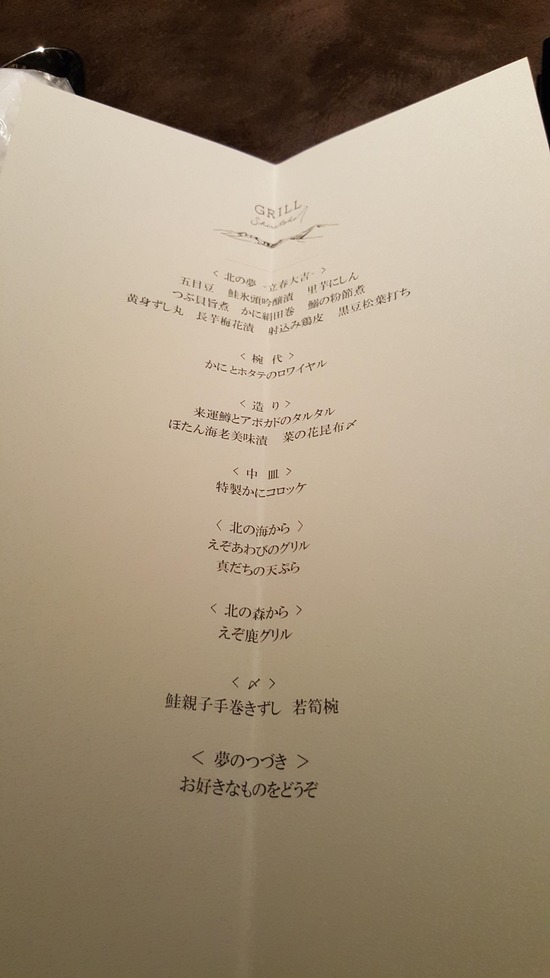 GRILL
Shiretoko
< 北の夢 -立春大吉- >
五目豆　鮭氷頭吟醸漬　里芋にしん
つぶ貝旨煮　かに絹田巻　鰯の粉節煮
黄身ずし丸　長芋梅花漬　射込み鶏皮　黒豆松葉打ち
< 椀 代 >
かにとホタテのロワイヤル
< 造 り >
来運鱒とアボカドのタルタル
ぼたん海老美味漬　菜の花昆布〆
< 中 皿 >
特製かにコロッケ
< 北の海から >
えぞあわびのグリル
真だちの天ぷら
< 北の森から >
えぞ鹿グリル
< 〆 >
鮭親子手巻きずし　若筍椀
< 夢のつづき >
お好きなものをどうぞ